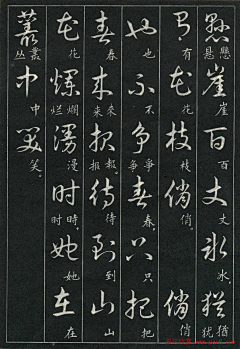 懸崖百丈冰猶
懸悬 崖 百 丈 冰, 猶犹
有花枝俏俏
有 花 枝 俏。 俏
也不争春只把
也 不 爭争 春 只 把
春来报待到山
春 來来 報报。 待 到 山
花爛漫时她在
花 爛烂 漫 時时, 她 在
叢中笑
叢丛 中 笑。